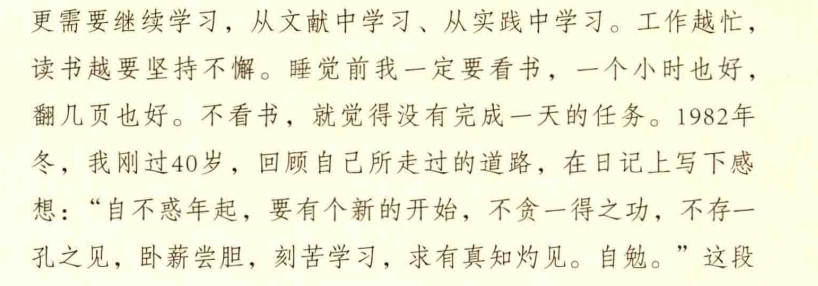 更需要继续学习，从文献中学习、从实践中学习。工作越忙，
读书越要坚持不懈。睡觉前我一定要看书，一个小时也好，
翻几页也好。不看书，就觉得没有完成一天的任务。1982年
冬，我刚过40岁，回顾自己所走过的道路，在日记上写下感
想：“自不惑年起，要有个新的开始，不贪一得之功，不存一
孔之见，卧薪尝胆，刻苦学习，求有真知灼见。自勉。”这段